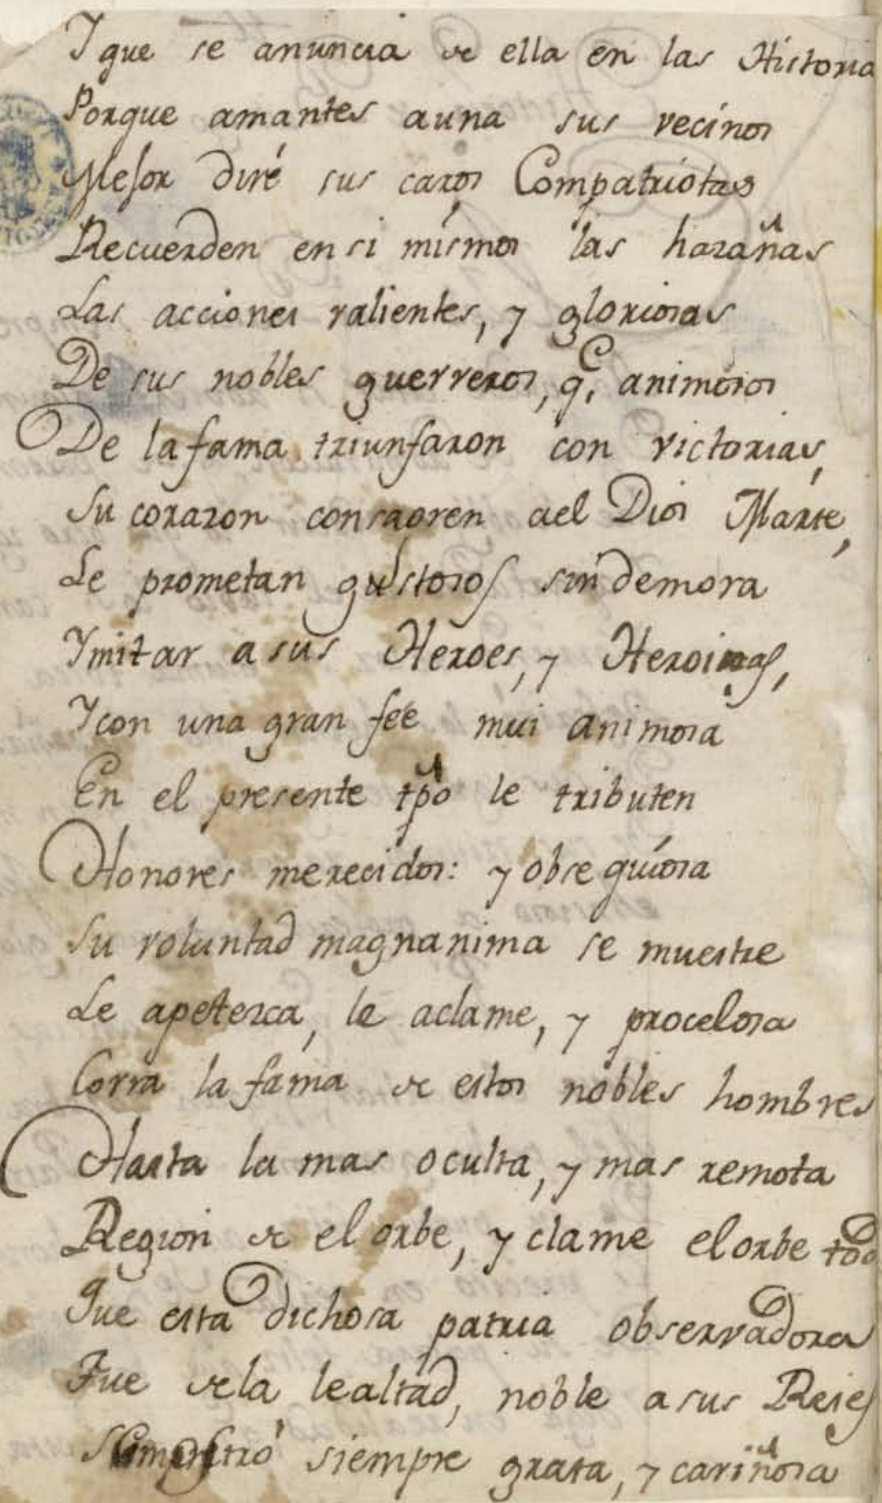 Y que se anuncia de ella en las Historia
Porque amantes a una sus vecinos
Mejor diré sus caros Compatriotas
Recuerden en si mismos las hazañas
Las acciones valientes, y gloriosas
De sus nobles guerreros, q.e animosos
De la fama triunfaron con victorias,
Su corazon consagren ael Dios Marte,
Le prometan gustosos sin demora
Ymitar a sus Heroes, y Heroinas,
Y con una gran feé mui animosa
En el presente tpõ le tributen
Honores merecidos: y obsequiosa
Su voluntad magnanima se muestre
Le apetezca, le aclame, y procelosa
Corra la fama de estos nobles hombres
Hasta la mas oculta, y mas remota
Region de el orbe, y clame el orbe todo
Que esta dichosa patria observadora
Fue de la lealtad, noble a sus Reies
siempre grata, y cariñosa